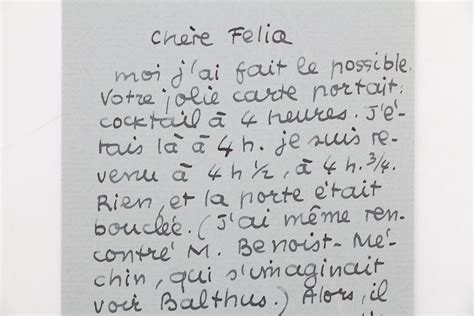 Chère Felia
moi j'ai fait le possible.
Votre jolie carte portait:
cocktail à 4 heures. J'é-
tais là à 4 h. je suis re-
venu à 4 h ½, à 4 h. ¾.
Rien, et la porte était
bouclée. (J'ai même ren-
contré M. Benoist-Mé-
chin, qui s'imaginait
voir Balthus.) Alors, il